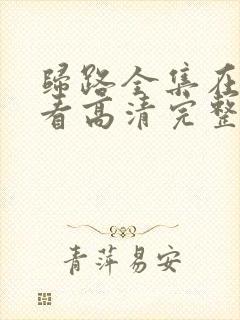 歸路全集在
看高清完整
青萍易安